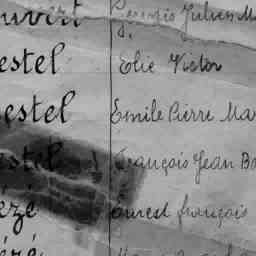 uvert Julien M
estel Elie Victor
estel Emile Pierre Ma
estel François Jean Ba
ézé Ernest françois
ézé